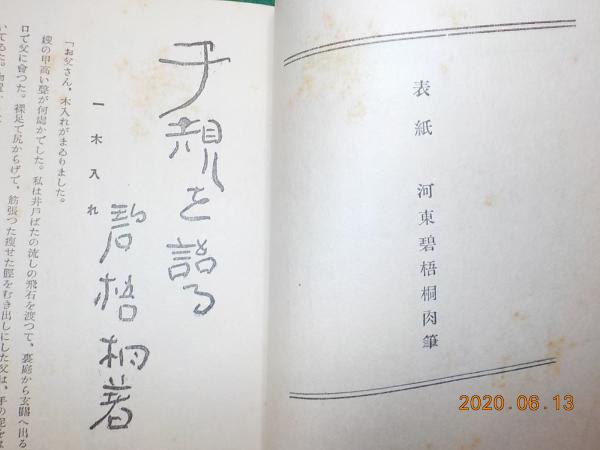 表紙　河東碧梧桐肉筆
子規を語る
碧梧桐著
一　木入れ
「お父さん、木入れがまゐりました。
嫂の甲高い聲が何處かでした。私は井戸ばたの流しの飛石を渡つて、裏庭から玄關へ出る
ロで父に會つた。裸足で尻からげて、筋張つた瘦せた脛をむき出しにした父は、手の泥をは
2020.06.13